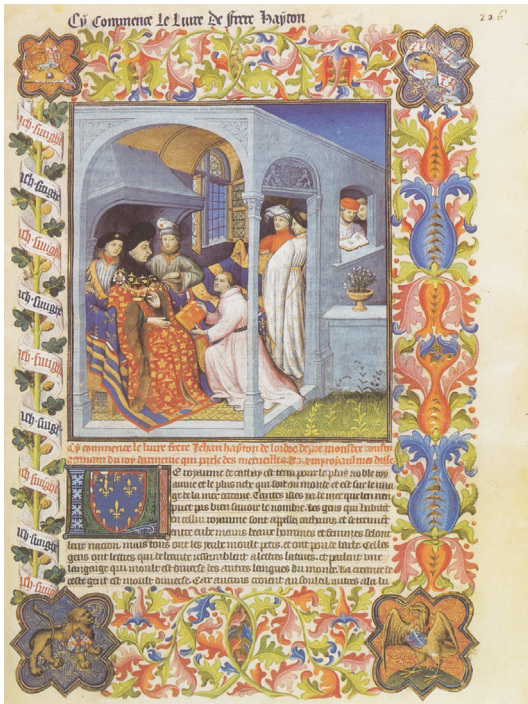 Cy Commence le Livre de frere Hayton
226
ich swighe
ich swighe
ich swighe
ich swighe
ich swighe
ich swighe
ich swighe
ich swighe
ich swighe
Cy commence le livre frere Jehan hayton de lordre de
germain du roy darmenie qui parle des merveilles
E royaume de cathay est tenu pour le plus noble roy
aume et le plus riche qui soit ou monde et est sur le riva
ge de la mer occeane. Tantes isles ya de mer que len nen
puet pas bien savoir le nombre. Les gens qui habitent
en cellui royaume sont appellez cathains et se treuvent
entre eulx maints beaux hommes et femmes selonc
leur nacion, mais tous ont les yeulx moult petis. et ont pou de barbe. Celles
gens ont lettres qui de beaute ressemblent a lettres latines. et parlent une
langaige qui moult est diverse des autres langues du monde. La creance de
ceste gent est moult diverse. Car aucuns croient au souleil. autres a la lu